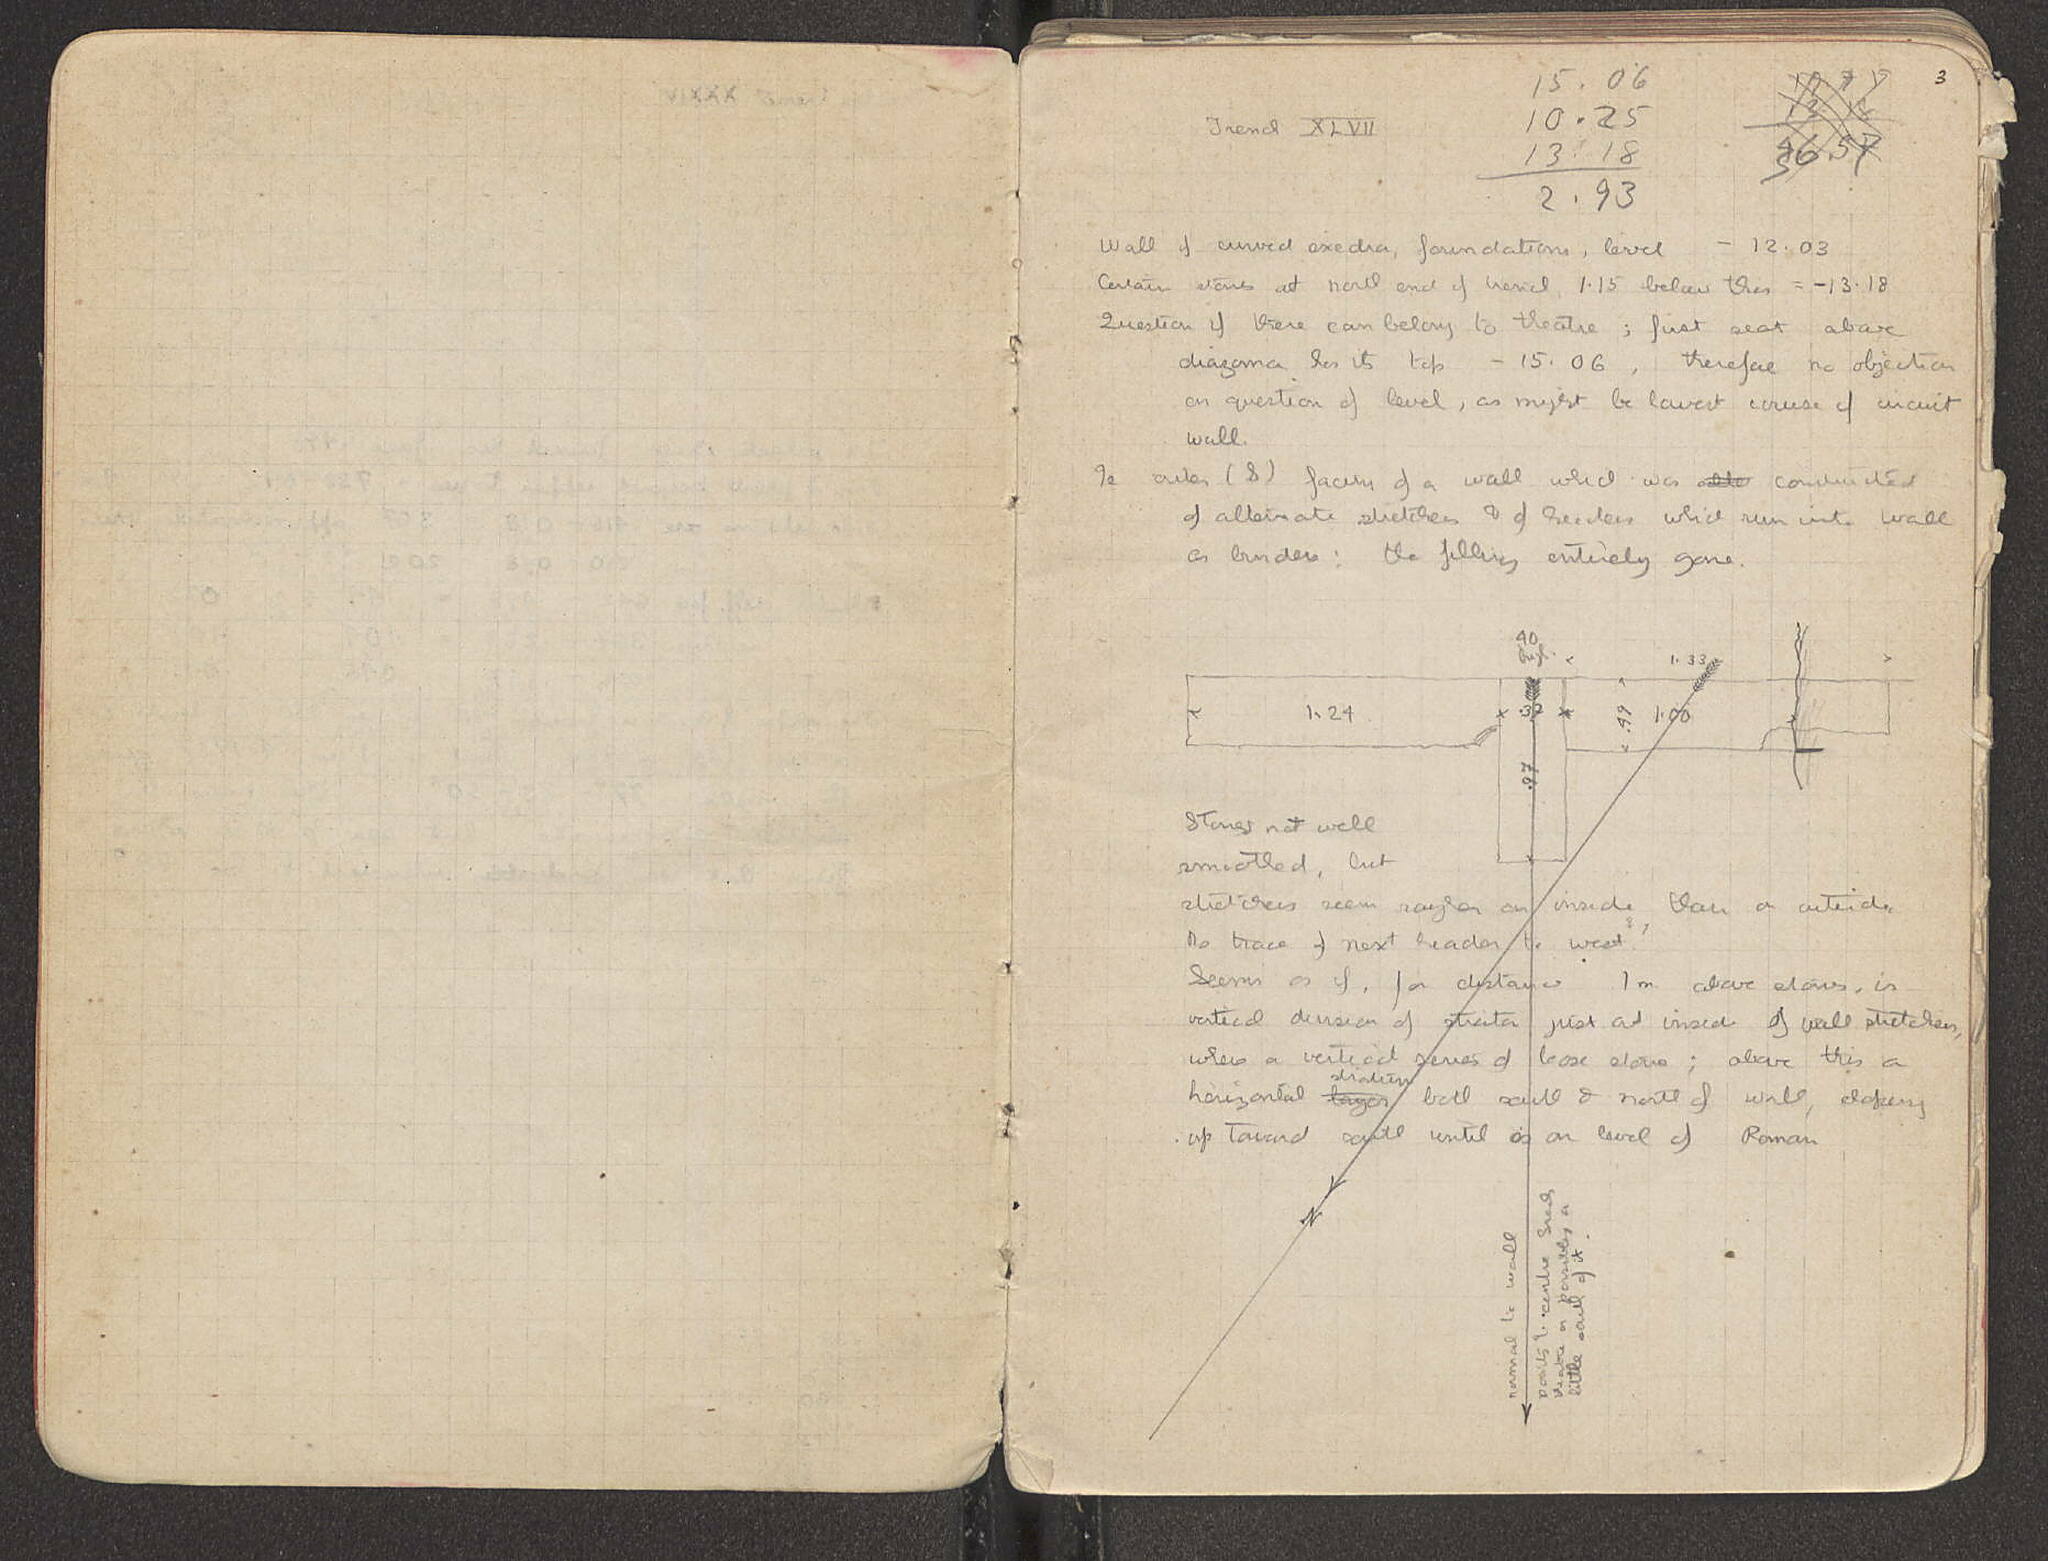 3
Trench XLVII
15.06
10.25
13.18
2.93
36.57
Wall of curved exedra, foundations, level - 12.03
Certain stones at north end of trench, 1.15 below this = -13.18
Question if these can belong to theatre; first seat above
diazoma has its top - 15.06, therefore no objection
on question of level, as might be lowest course of circuit
wall.
Is outer (S) facing of a wall which was constructed
of alternate stretchers & of headers which run into wall
as binders: the filling entirely gone.
.40
high.
1.33
1.24
.32
.49
1.00
.97
Stones not well
smoothed, but
stretchers seem rougher on inside than on outside
No trace of next header to west?
Seems as if, for distance 1 m above stones, is
vertical division of strata just at inside of wall stretchers,
where a vertical series of loose stones; above this a
horizontal layer stratum both south & north of wall, sloping
up toward south until is on level of Roman
N
normal to wall
points to centre Greek
theatre or possibly a
little south of it.